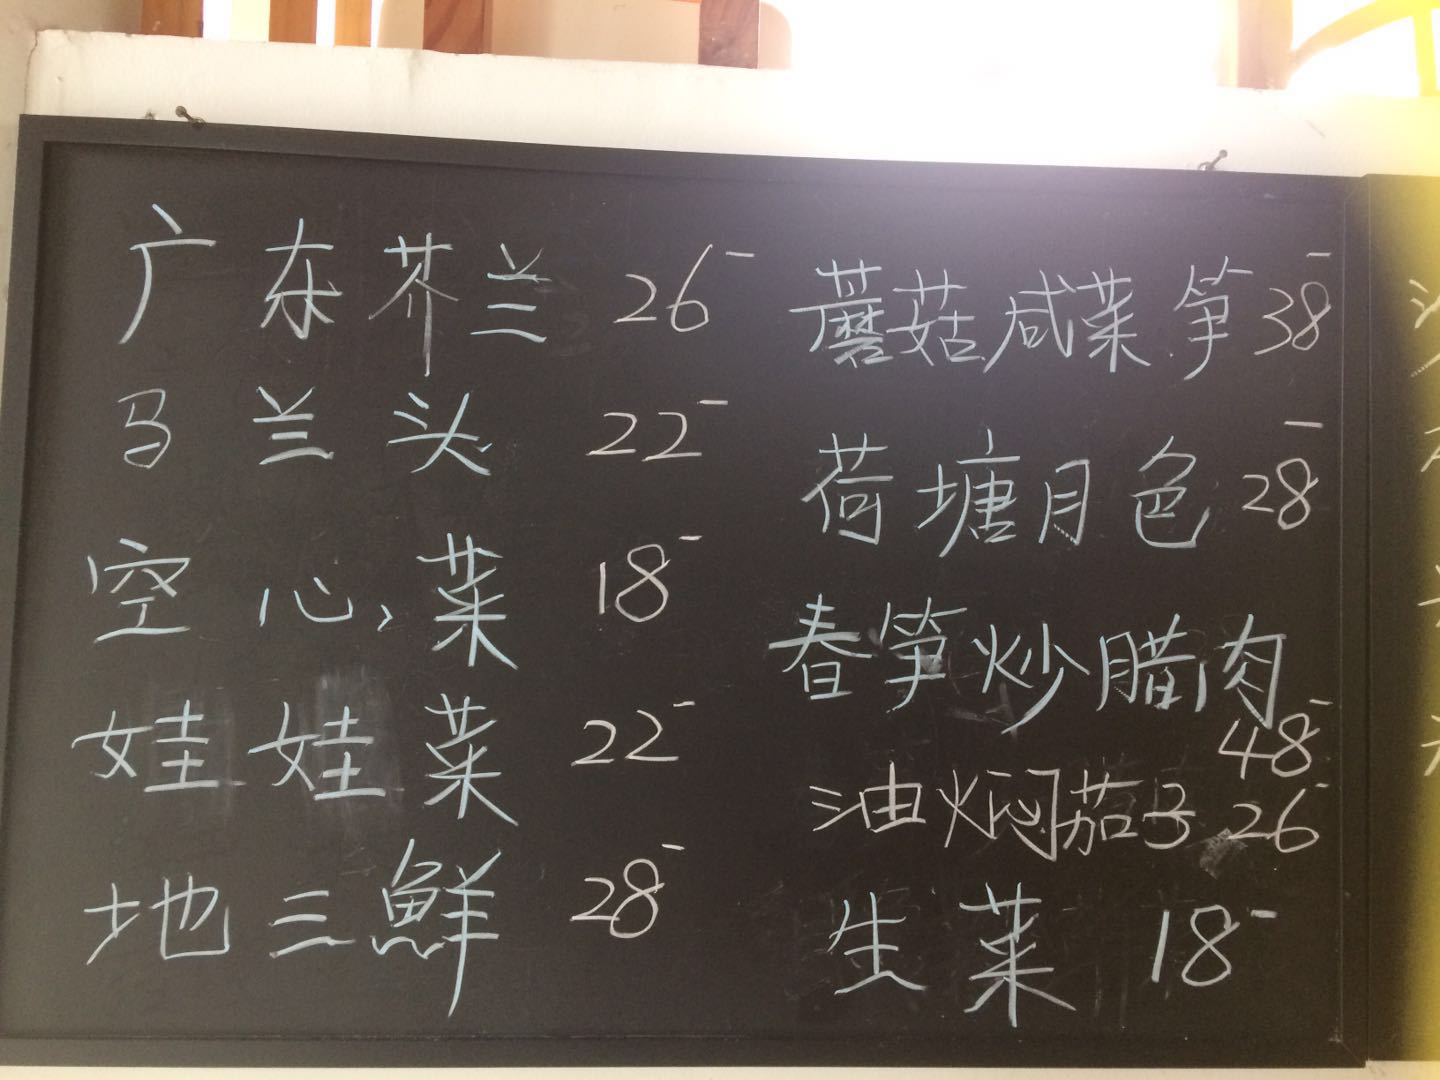 广东芥兰 26-
马兰头 22-
空心菜 18-
娃娃菜 22-
地三鲜 28-
蘑菇咸菜笋 38-
荷塘月色 28-
春笋炒腊肉
48-
油焖茄子 26-
生菜 18-